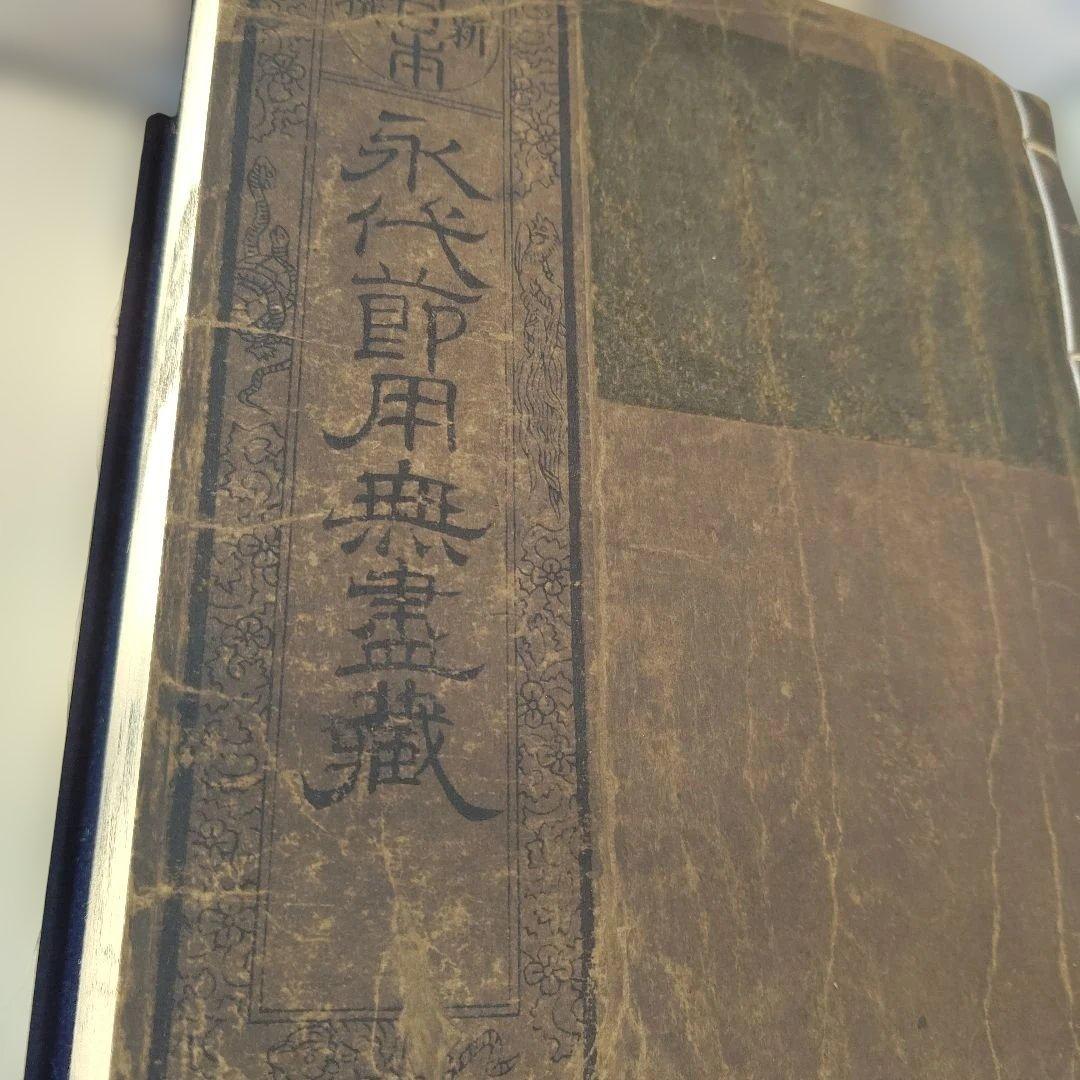 新
永代節用無盡藏